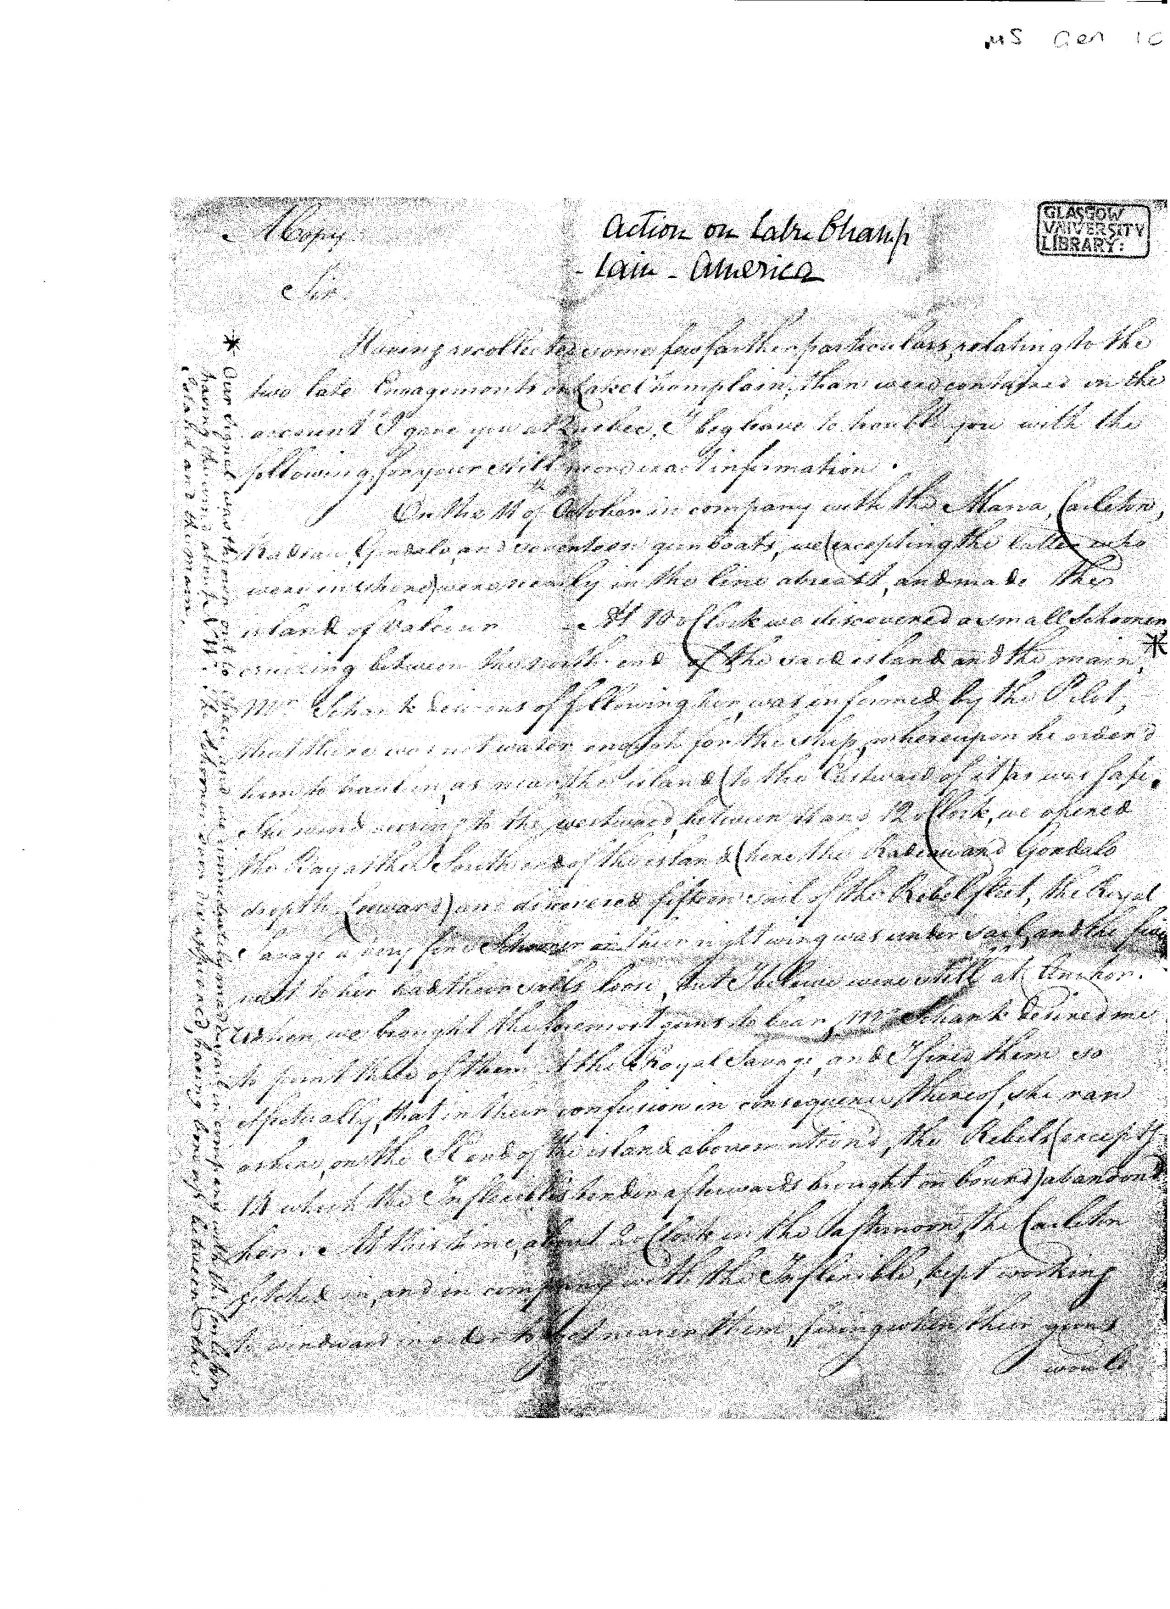 MS Gen 10
GLASGOW
UNIVERSITY
LIBRARY:
A Copy
Action on Lake Champ
- lain - America
Sir
Having recollected some few farther particulars, relating to the
two late Engagements on Lake Champlain, than were contained in the
account I gave you at Quebec, I beg leave to trouble you with the
following, for your still more exact information.
On the 11th of October in company with the Maria, Carleton,
Radeau, Gondalo, and seventeen gun boats, we (excepting the latter who
were in shore) were nearly in the line abreast, and made the
island of Valcour At 10 o Clock we discovered a small Schooner
cruizing between the north end of the said island and the main, *
Mr Schank desirous of following her, was informed by the Pilot,
that there was not water enough for the ship, whereupon he order'd
him to haul in, as near the island (to the Eastward of it) as was safe.
The wind veering to the westward, between 11 and 12 o Clock, we opened
the Bay at the South end of the island (here the Radeau and Gondalo
dropt to Leeward) and discovered fifteen sail of the Rebel fleet, the Royal
Savage a very fine Schooner in their right wing was under sail, and the five
next to her had their sails loose, but I believe were still at Anchor.
When we brought the foremost guns to bear, Mr Schank desired me
to point three of them at the Royal Savage, and I fired them so
effectually, that in their confusion in consequence thereof, she ran
ashore, on the SW end of the island abovemention'd, the Rebels (except
14 which the Inflexible's tender afterwards brought on board) abandon'd
her. At this time, about 2 o Clock in the afternoon, the Carleton
fetched in, and in company with the Inflexible, kept working
to windward in order to get nearer them, firing when their guns
would
* Our signal was thrown out to Chace, and we immediately made sail in company with the Carleton,
having the wind about NW. The Schooner soon disappeared, having bore off between the
Island and the main.